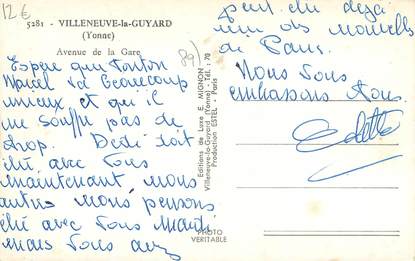 12€
5281 - VILLENEUVE-la-GUYARD
(Yonne)
Avenue de la Gare
89)
Espère que Tonton
Marcel va beaucoup
mieux et qu'il
ne souffre pas de
trop. Dédé doit
être avec vous
maintenant, nous
autres nous pensons
être avec vous mardi
mais vous avez
Editions de Luxe E. MIGNON
Villeneuve-la-Guyard (Yonne) - Tél. : 70
Production ESTEL - Paris
PHOTO
VÉRITABLE
peut être déjà
des nouvelles
de Paris.
Nous vous
embrassons tous.
Odette